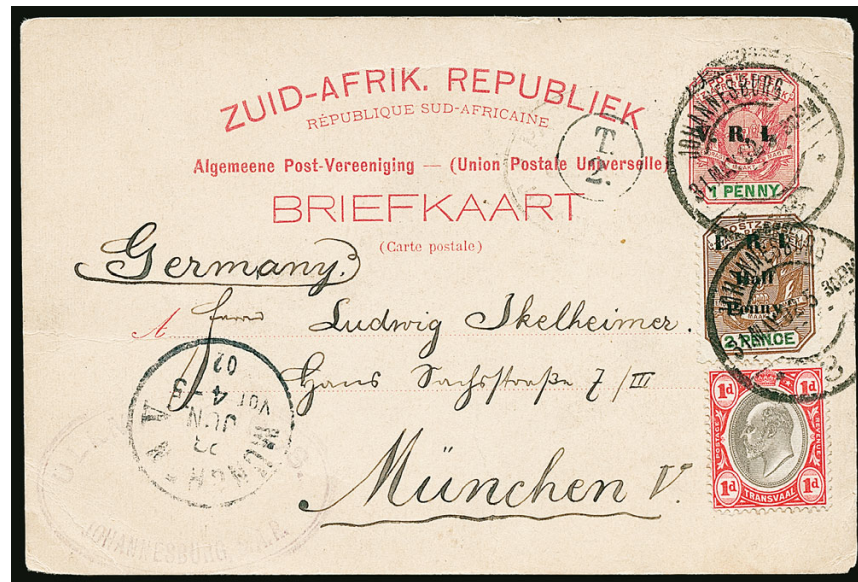 ZUID-AFRIK. REPUBLIEK
RÉPUBLIQUE SUD-AFRICAINE
Algemeene Post-Vereeniging — (Union Postale Universelle)
BRIEFKAART
(Carte postale)
T.
2.
JOHANNESBURG
31 MAY 02
V. R. I.
1 PENNY
E. R. I.
Half
Penny
2 PENCE
JOHANNESBURG
31 MAY 02
1d 1d
POSTAGE REVENUE
1d 1d
TRANSVAAL
Germany.
A Herrn Ludwig Ikelheimer.
Hans Sachsstraße 7/III
München V.
MÜNCHEN
23
JUN
Vor 4-5
02
JOHANNESBURG Z.A.R.